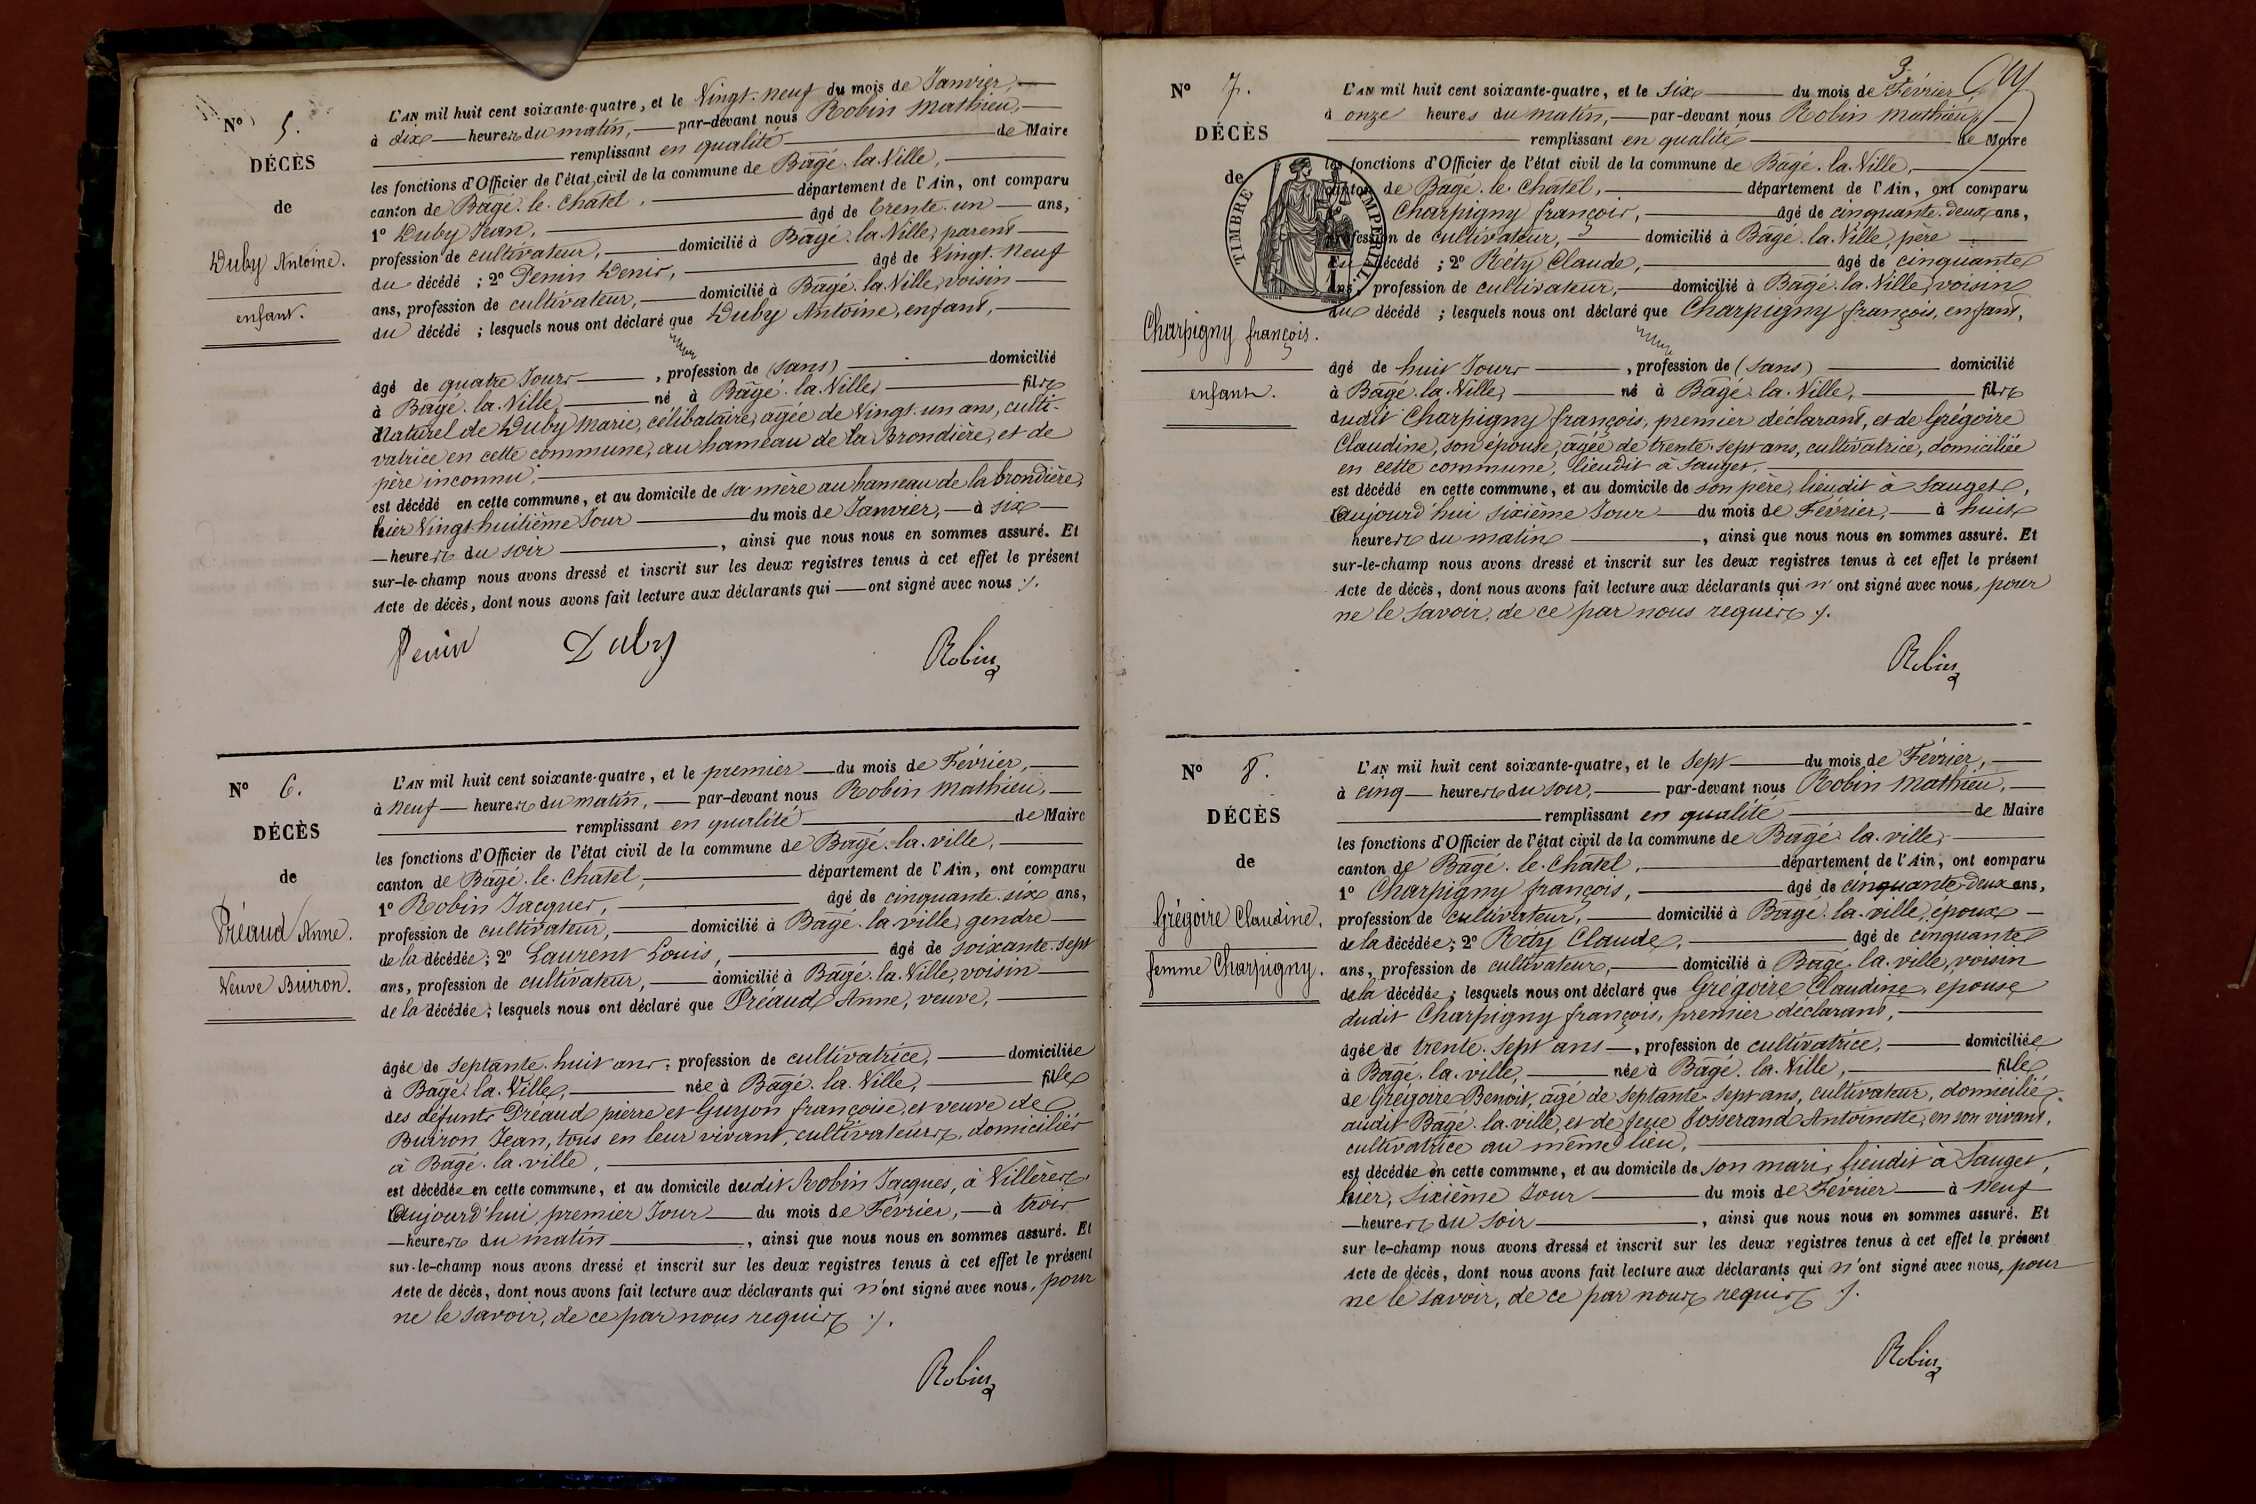 Nº 5.
DÉCÈS
de
Duby Antoine.
enfant.
L'AN mil huit cent soixante-quatre, et le Vingt-neuf du mois de Janvier,
à dix heures du matin, par-devant nous Robin Mathieu,
remplissant en qualité de Maire
les fonctions d'Officier de l'état civil de la commune de Bâgé-la-Ville,
canton de Bâgé-le-Châtel, département de l'Ain, ont comparu
1º Duby Jean, âgé de trente-un ans,
profession de cultivateur, domicilié à Bâgé-la-Ville, parent
du décédé ; 2º Penin Denis, âgé de Vingt-Neuf
ans, profession de cultivateur, domicilié à Bâgé-la-Ville, voisin
du décédé ; lesquels nous ont déclaré que Duby Antoine, enfant,
âgé de quatre Jours, profession de (sans) domicilié
à Bâgé-la-Ville, né à Bâgé-la-Ville, fils
Naturel de Duby Marie, célibataire, agée de Vingt-un ans, culti-
vatrice en cette commune, au hameau de la Brondière, et de
père inconnu,
est décédé en cette commune, et au domicile de sa mère au hameau de la brondière,
hier Vingt huitième Jour du mois de Janvier, à six
heures du soir, ainsi que nous nous en sommes assuré. Et
sur-le-champ nous avons dressé et inscrit sur les deux registres tenus à cet effet le présent
Acte de décès, dont nous avons fait lecture aux déclarants qui ont signé avec nous ./.
Penin Duby Robin
Nº 6.
DÉCÈS
de
Préaud Anne.
Veuve Buiron.
L'AN mil huit cent soixante-quatre, et le premier du mois de Février,
à Neuf heures du matin, par-devant nous Robin Mathieu,
remplissant en qualité de Maire
les fonctions d'Officier de l'état civil de la commune de Bâgé-la-ville,
canton de Bâgé-le-Châtel, département de l'Ain, ont comparu
1º Robin Jacques, âgé de cinquante-six ans,
profession de cultivateur, domicilié à Bâgé-la-ville, gendre
de la décédée ; 2º Laurent Louis, âgé de soixante-sept
ans, profession de cultivateur, domicilié à Bâgé-la-Ville, voisin
de la décédée ; lesquels nous ont déclaré que Préaud Anne, veuve,
âgée de septante-huit ans, profession de cultivatrice, domiciliée
à Bâgé-la-Ville, née à Bâgé-la-Ville, fille
des défunts Préaud pierre et Guyon françoise, et veuve de
Buiron Jean, tous en leur vivant, cultivateurs, domiciliés
à Bâgé-la-ville,
est décédée en cette commune, et au domicile dudit Robin Jacques, à Villères,
aujourd'hui premier Jour du mois de Février, à trois
heures du matin, ainsi que nous nous en sommes assuré. Et
sur-le-champ nous avons dressé et inscrit sur les deux registres tenus à cet effet le présent
Acte de décès, dont nous avons fait lecture aux déclarants qui n'ont signé avec nous, pour
ne le savoir, de ce par nous requis ./.
Robin
3
Nº 7.
DÉCÈS
de
TIMBRE IMPÉRIAL
Charpigny françois.
enfant.
L'AN mil huit cent soixante-quatre, et le six du mois de Février
à onze heures du matin, par-devant nous Robin Mathieu,
remplissant en qualité de Maire
les fonctions d'Officier de l'état civil de la commune de Bâgé-la-Ville,
canton de Bâgé-le-Châtel, département de l'Ain, ont comparu
Charpigny françois, âgé de cinquante-deux ans,
profession de cultivateur, domicilié à Bâgé-la-Ville, père
du décédé ; 2º Réty Claude, âgé de cinquante
ans, profession de cultivateur, domicilié à Bâgé-la-Ville, voisin
du décédé ; lesquels nous ont déclaré que Charpigny françois, enfant,
âgé de huit Jours, profession de (sans) domicilié
à Bâgé-la-Ville, né à Bâgé-la-Ville, fils
dudit Charpigny françois, premier déclarant, et de Grégoire
Claudine, son épouse, agée de trente-sept ans, cultivatrice, domiciliée
en cette commune, lieudit à Sauget,
est décédé en cette commune, et au domicile de son père, lieudit à Sauget,
aujourd'hui sixième Jour du mois de Février, à huit
heures du matin, ainsi que nous nous en sommes assuré. Et
sur-le-champ nous avons dressé et inscrit sur les deux registres tenus à cet effet le présent
Acte de décès, dont nous avons fait lecture aux déclarants qui n'ont signé avec nous, pour
ne le savoir, de ce par nous requis ./.
Robin
Nº 8.
DÉCÈS
de
Grégoire Claudine,
femme Charpigny.
L'AN mil huit cent soixante-quatre, et le sept du mois de Février,
à cinq heures du soir, par-devant nous Robin Mathieu,
remplissant en qualité de Maire
les fonctions d'Officier de l'état civil de la commune de Bâgé-la-ville,
canton de Bâgé-le-Châtel, département de l'Ain, ont comparu
1º Charpigny françois, âgé de cinquante-deux ans,
profession de cultivateur, domicilié à Bâgé-la-ville, époux
de la décédée ; 2º Réty Claude, âgé de cinquante
ans, profession de cultivateur, domicilié à Bâgé-la-ville, voisin
de la décédée ; lesquels nous ont déclaré que Grégoire Claudine, épouse
dudit Charpigny françois, premier déclarant,
âgée de trente-sept ans, profession de cultivatrice, domiciliée
à Bâgé-la-ville, née à Bâgé-la-Ville, fille
de Grégoire Benoit, agé de septante-sept ans, cultivateur, domicilié
audit Bâgé-la-ville, et de feue Josserand Antoinette, en son vivant,
cultivatrice au même lieu,
est décédée en cette commune, et au domicile de son mari, lieudit à Sauget,
hier, sixième Jour du mois de Février à Neuf
heures du soir, ainsi que nous nous en sommes assuré. Et
sur le-champ nous avons dressé et inscrit sur les deux registres tenus à cet effet le présent
Acte de décès, dont nous avons fait lecture aux déclarants qui n'ont signé avec nous, pour
ne le savoir, de ce par nous requis ./.
Robin